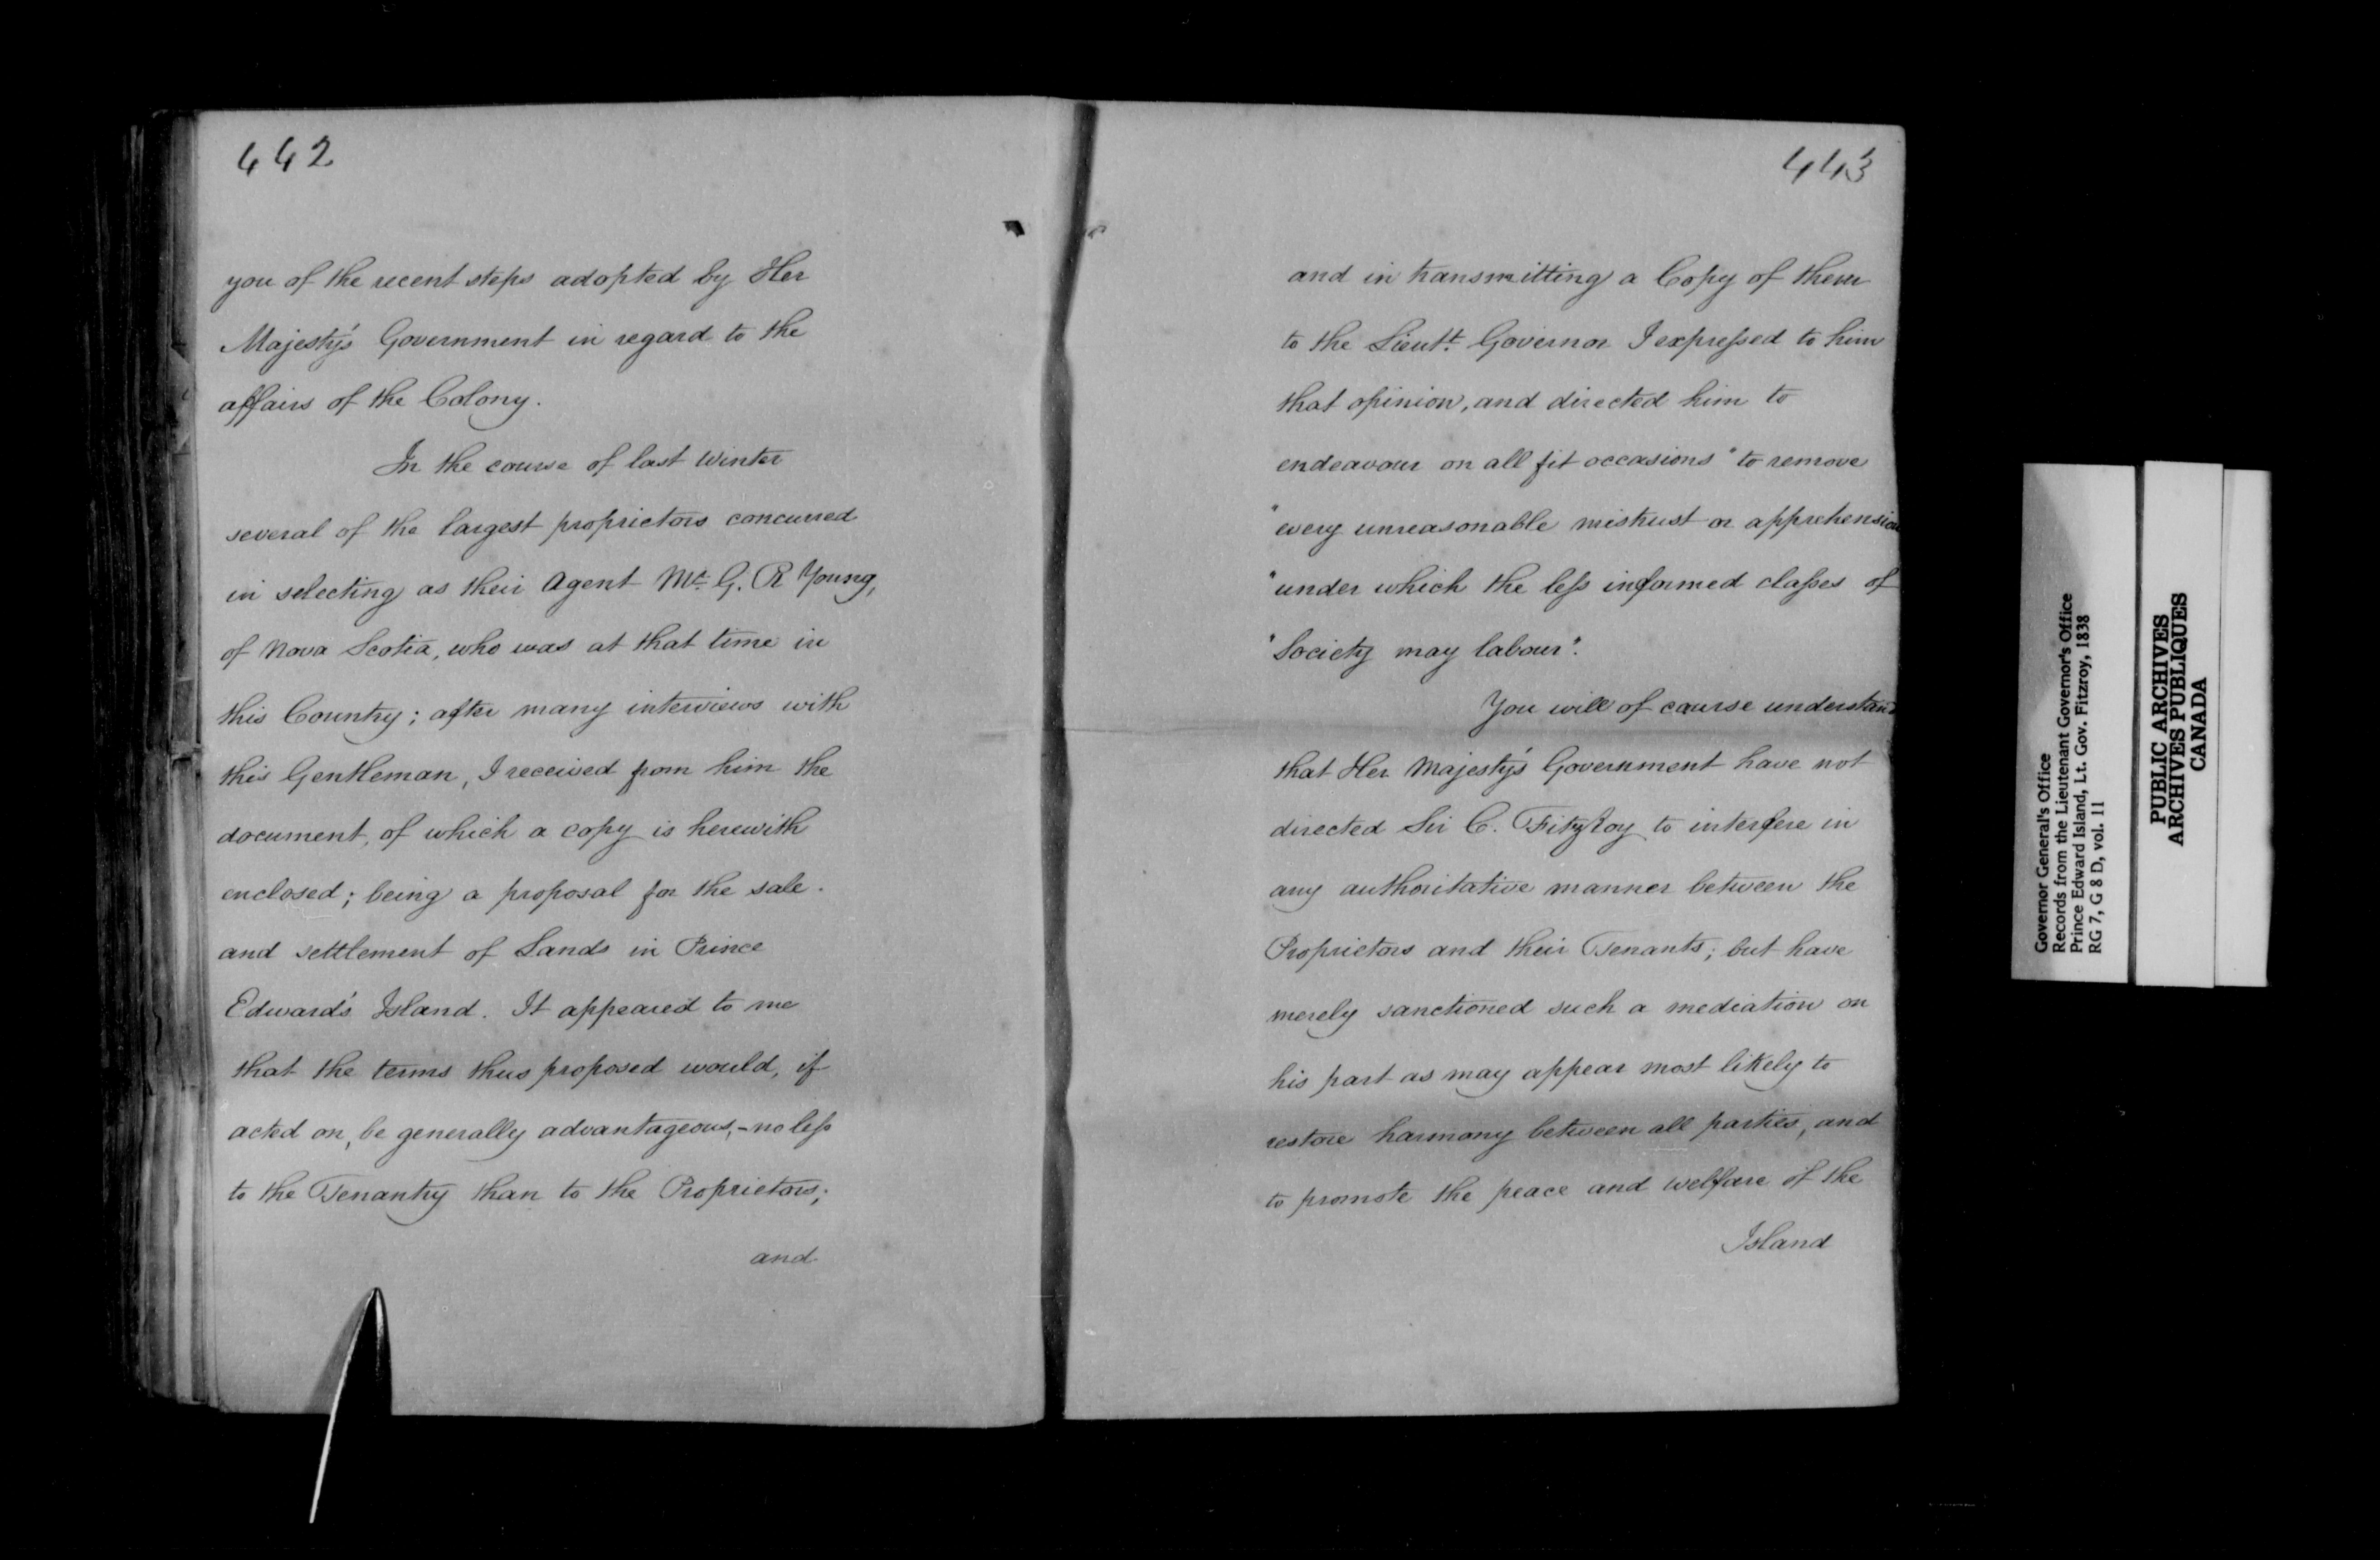 442
you of the recent steps adopted by Her
Majesty's Government in regard to the
affairs of the Colony.
In the course of last Winter
several of the largest proprietors concurred
in selecting as their Agent Mr. G. R Young,
of Nova Scotia, who was at that time in
this Country; after many interviews with
this Gentleman, I received from him the
document, of which a copy is herewith
enclosed; being a proposal for the sale
and settlement of Lands in Prince
Edward's Island. It appeared to me
that the terms thus proposed would, if
acted on, be generally advantageous,- no less
to the Tenantry than to the Proprietors;
and
443
and in transmitting a Copy of them
to the Lieutt. Governor I expressed to him
that opinion, and directed him to
endeavour on all fit occasions "to remove
"every unreasonable mistrust or apprehension
"under which the less informed classes of
"Society may labour".
You will of course understand
that Her Majesty's Government have not
directed Sir C. FitzRoy to interfere in
any authoritative manner between the
Proprietors and their Tenants; but have
merely sanctioned such a mediation on
his part as may appear most likely to
restore harmony between all parties, and
to promote the peace and welfare of the
Island
Governor General's Office
Records from the Lieutenant Governor's Office
Prince Edward Island, Lt. Gov. Fitzroy, 1838
RG 7, G 8 D, vol. 11
PUBLIC ARCHIVES
ARCHIVES PUBLIQUES
CANADA